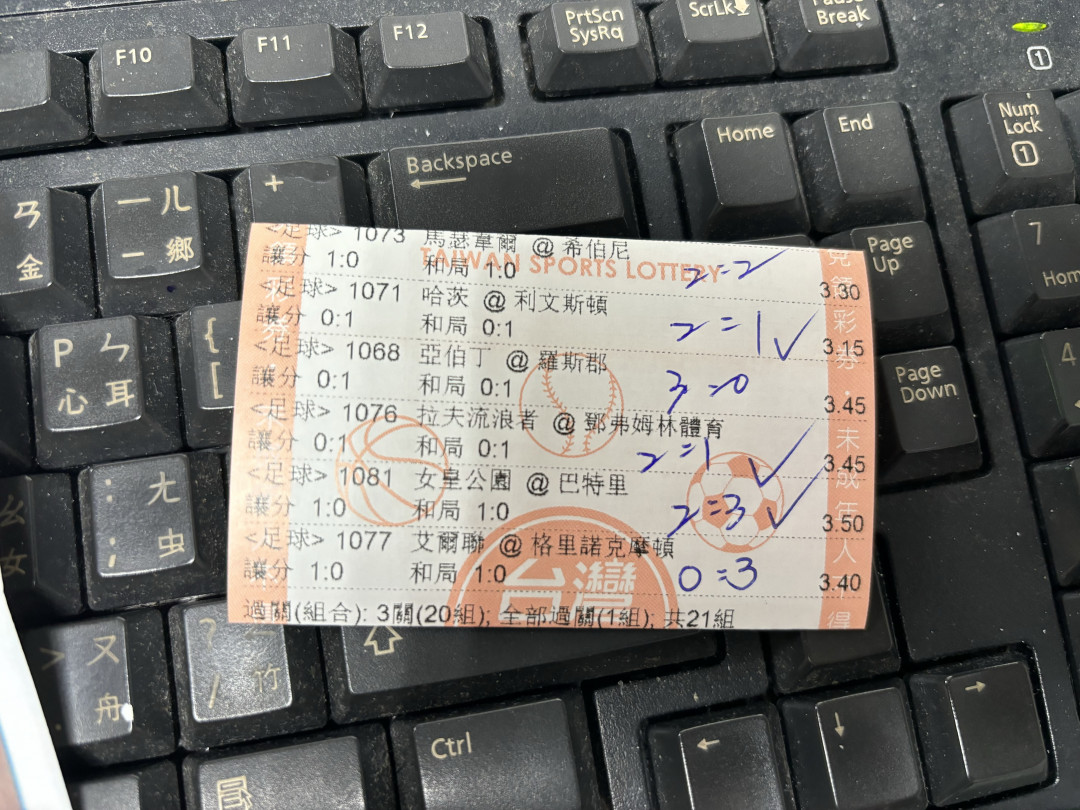 F10
F11
F12
PrtScn
SysRq
ScrLk
Pause
Break
1
Home
End
Num
Lock
1
Backspace
+
ㄢ
金
一 ㄦ
一 鄉
Page
Up
7
Home
P ㄣ
心 耳
{
[
4
Page
Down
: ㄤ
; 虫
ㄠ
女
> ㄡ
. 舟
?
/ 竹
Ctrl
TAIWAN SPORTS LOTTERY
<足球> 1073 馬瑟韋爾 @ 希伯尼
讓分 1:0 和局 1:0 2=2 3.30
<足球> 1071 哈茨 @ 利文斯頓
讓分 0:1 和局 0:1 2=1 ✓ 3.15
<足球> 1068 亞伯丁 @ 羅斯郡
讓分 0:1 和局 0:1 3=0 3.45
<足球> 1076 拉夫流浪者 @ 鄧弗姆林體育
讓分 0:1 和局 0:1 2=1 ✓ 3.45
<足球> 1081 女皇公園 @ 巴特里
讓分 1:0 和局 1:0 2=3 ✓ 3.50
<足球> 1077 艾爾聯 @ 格里諾克摩頓
讓分 1:0 和局 1:0 0=3 3.40
過關(組合): 3關(20組); 全部過關(1組); 共21組
台灣